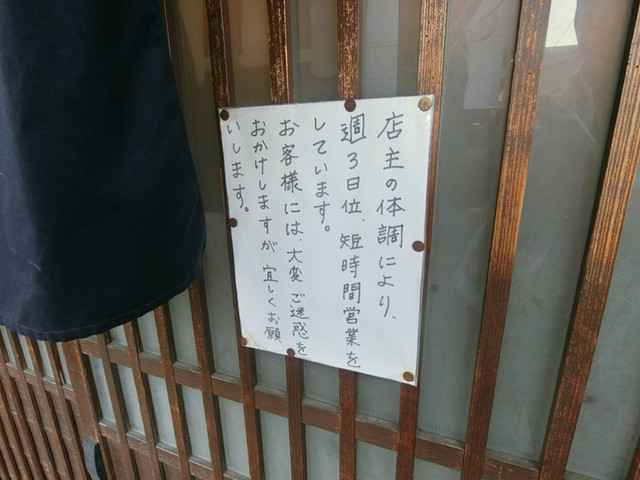 店主の体調により、
週3日位、短時間営業を
しています。
お客様には、大変ご迷惑を
おかけしますが宜しくお願
いします。